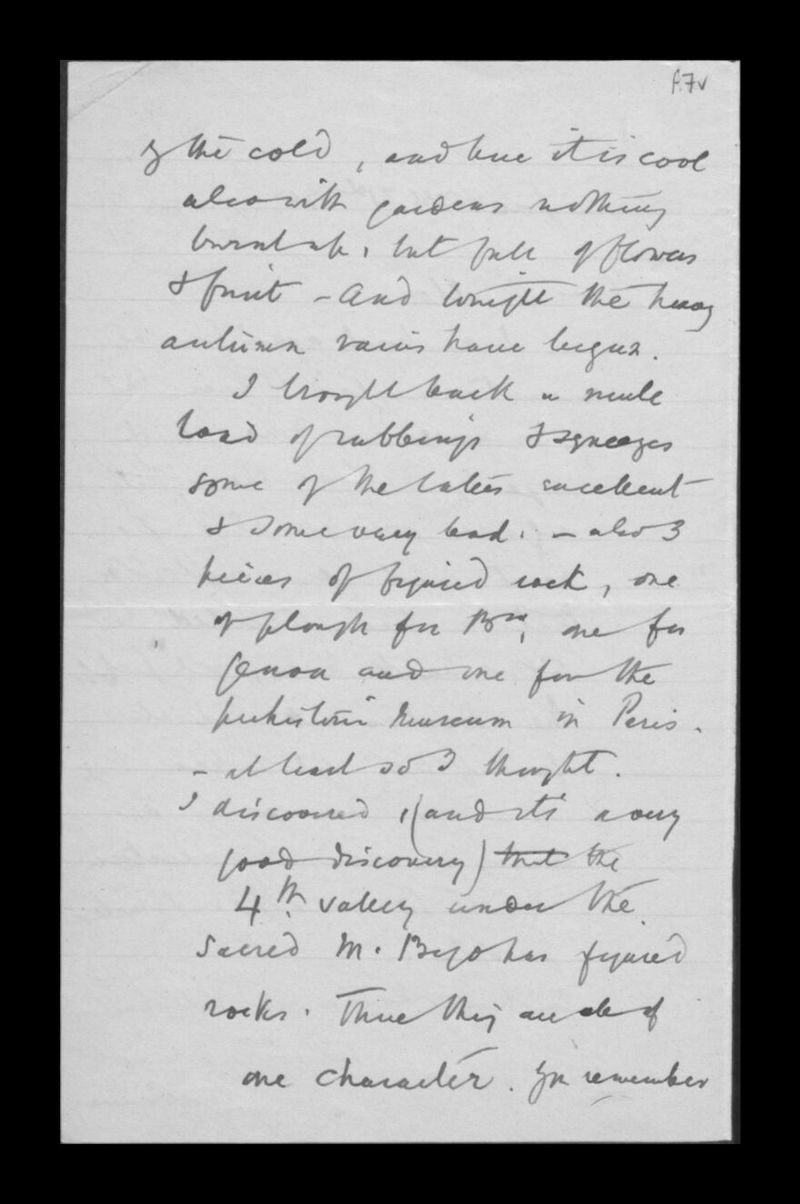 f.7v
of the cold, and here it is cool
also with gardens nothing
burnt up, but full of flowers
& fruit - And tonight the heavy
autumn rains have begun.
I brought back a mule
load of rubbings & squeezes
some of the latter excellent
& some very bad. - also 3
pieces of figured rock, one
of plough for Bm, one for
Genoa and one for the
prehistoric Museum in Paris.
- at least so I thought.
I discovered, (and its a very
good discovery) that the
4th. valley under the
Sacred M. Bego has figured
rocks. There they are all of
one character. You remember